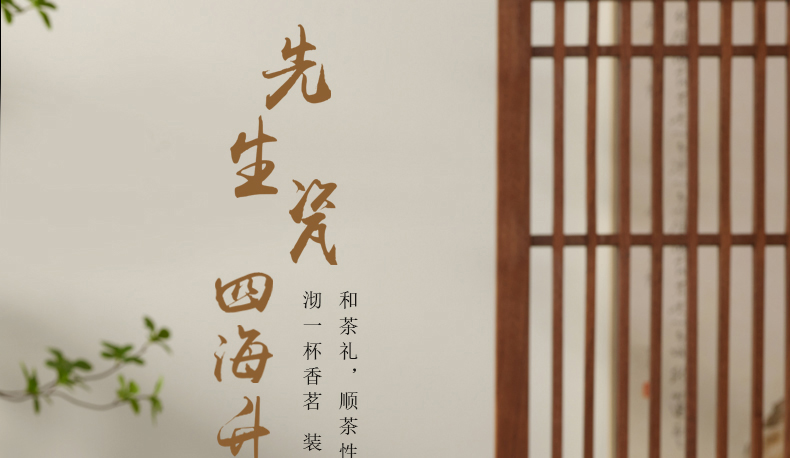 先生瓷
四海升
和茶礼，顺茶性
沏一杯香茗 装